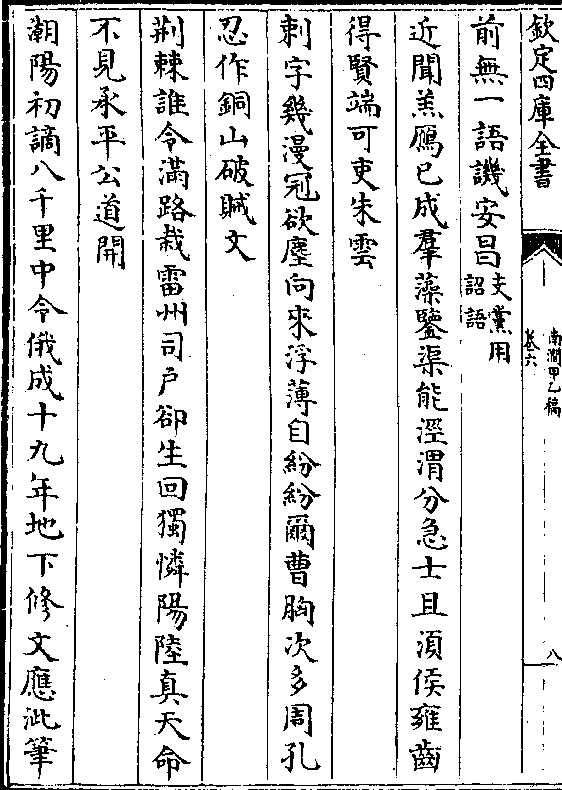 欽定四庫全書
南澗甲乙稿
卷六
八
前無一語譏安昌
支黨用
詔語
近聞羔鴈已成羣藻鑒渠能涇渭分急士且湏侯雍齒
得賢端可吏朱雲
刺字幾漫冠欲塵向來浮薄自紛紛爾曹胸次多周孔
忍作銅山破賊文
荆棘誰令滿路栽雷州司戶卻生回獨憐陽陸真天命
不見承平公道開
潮陽初謫八千里中令俄成十九年地下修文應泚筆